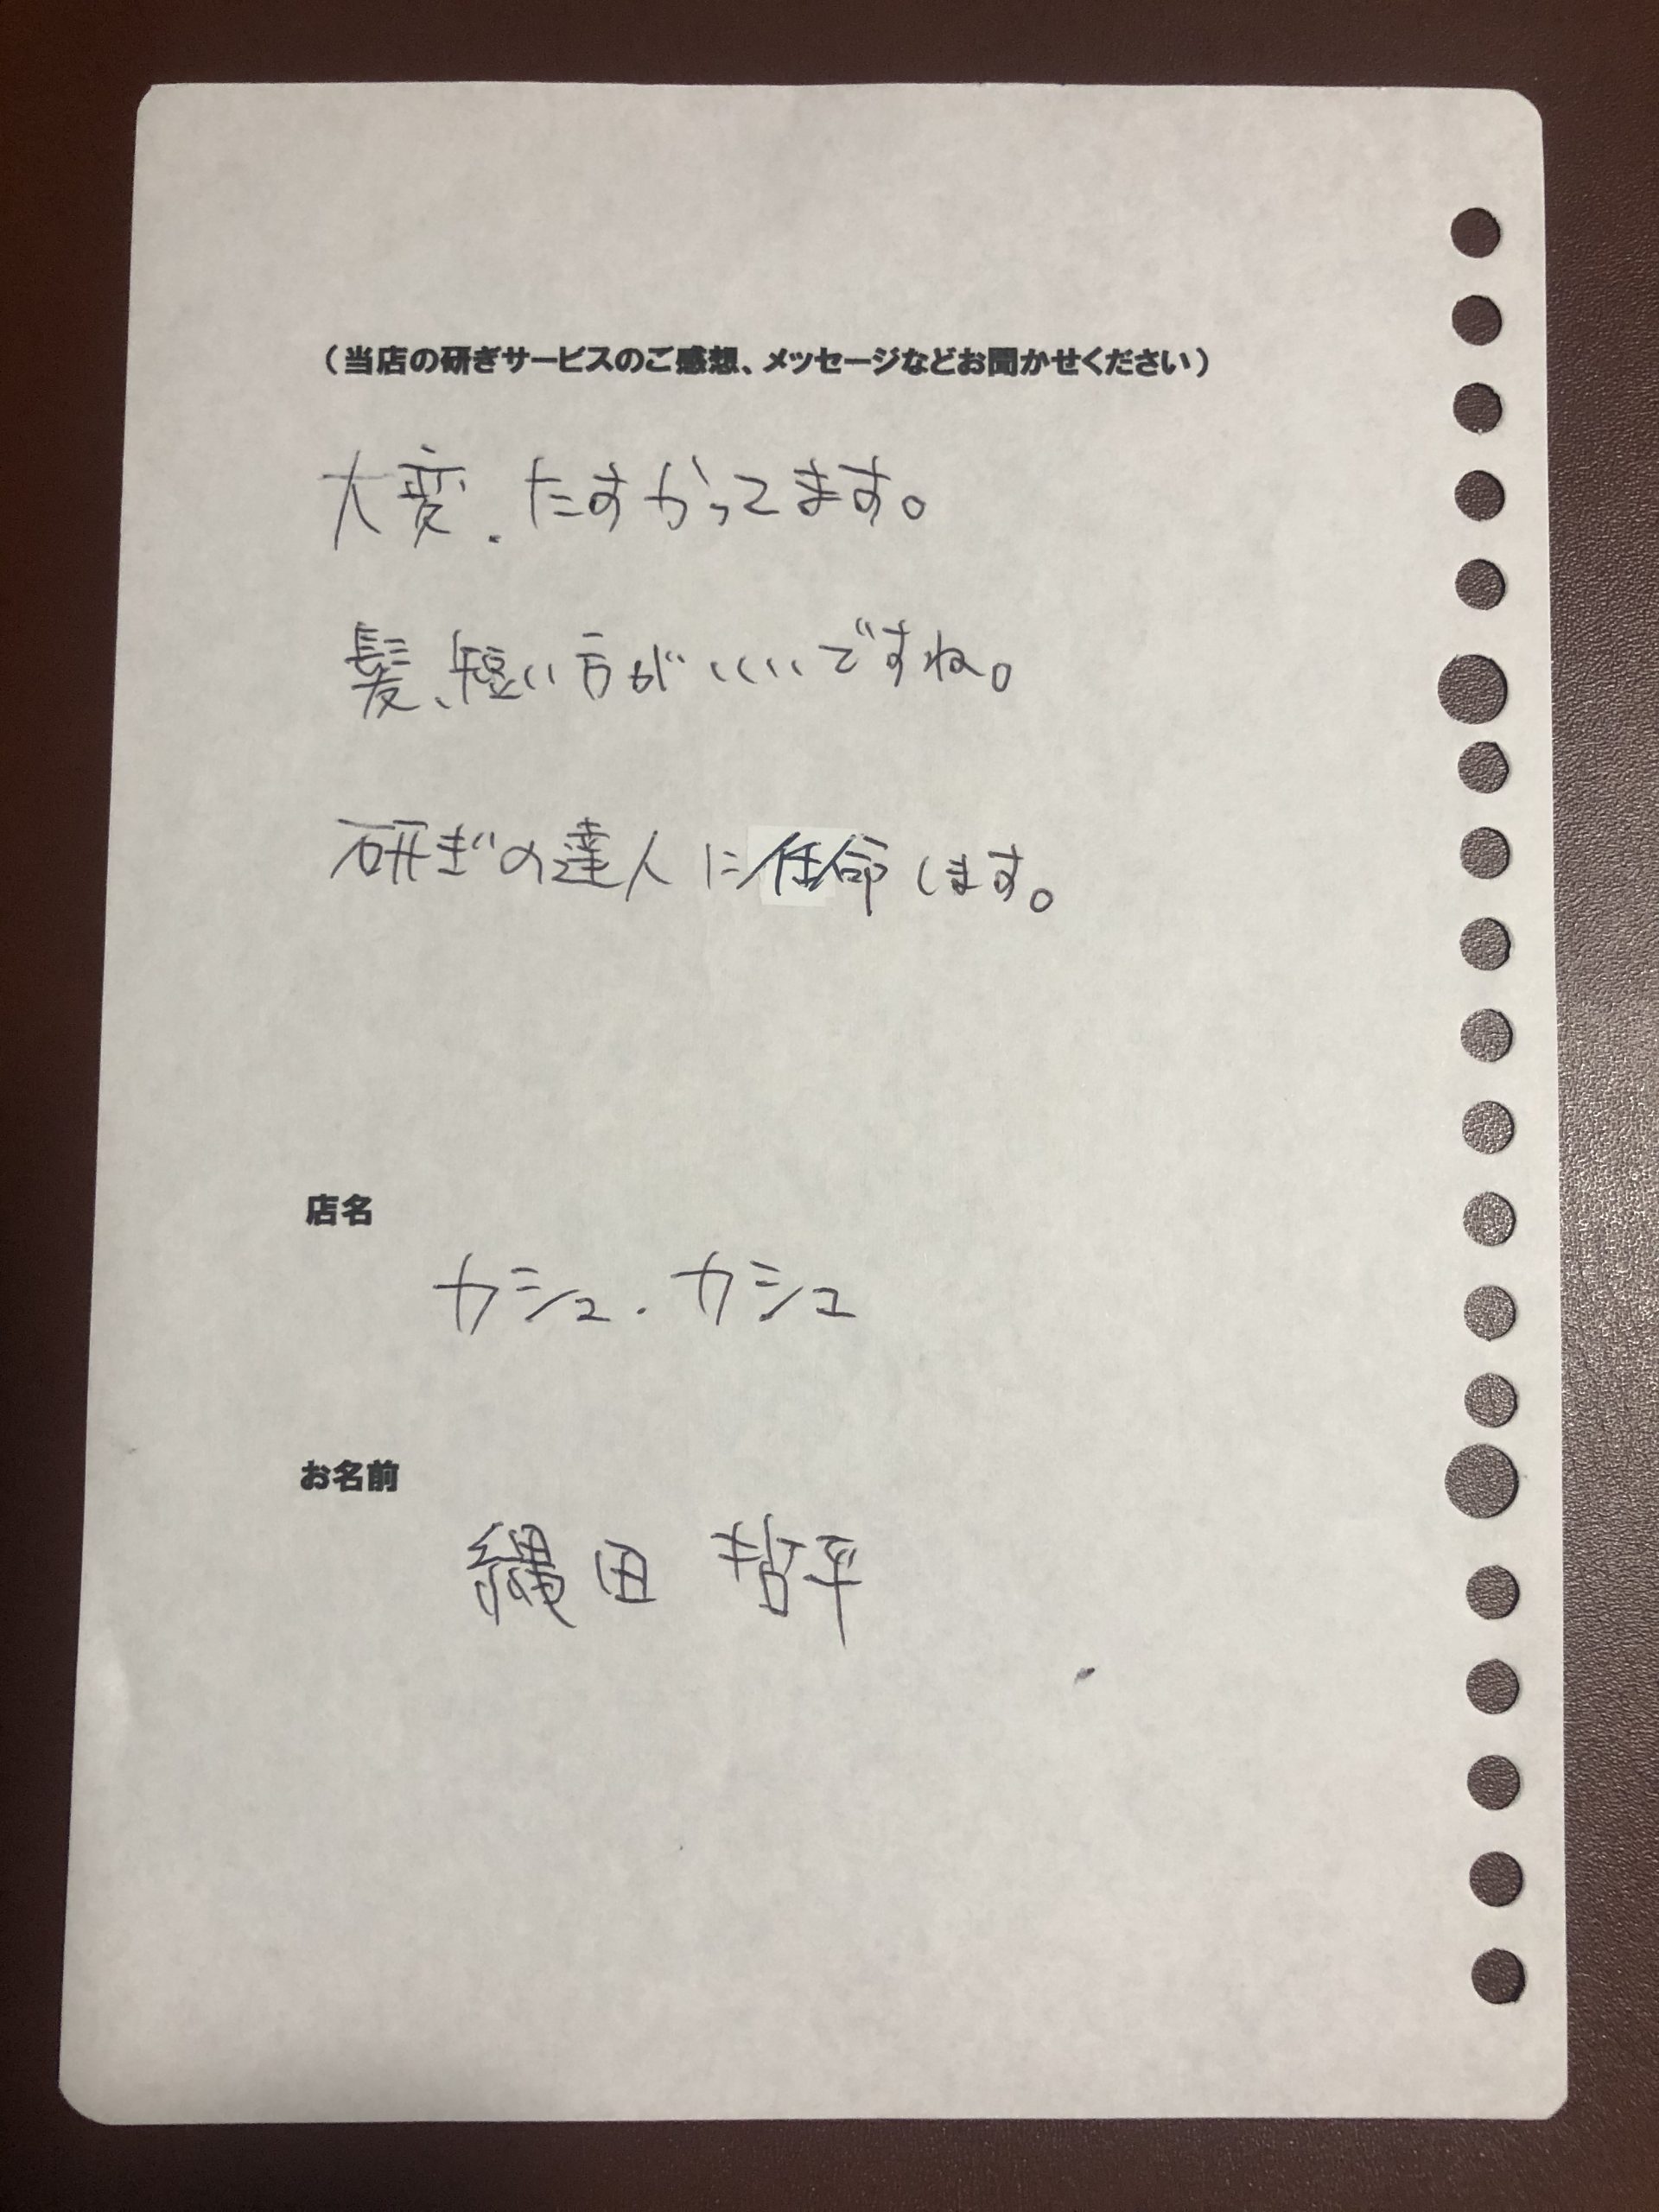 （当店の研ぎサービスのご感想、メッセージなどお聞かせください）
大変、たすかってます。
髪、短い方がいいですね。
研ぎの達人に任命します。
店名
カシュ・カシュ
お名前
縄田 哲平